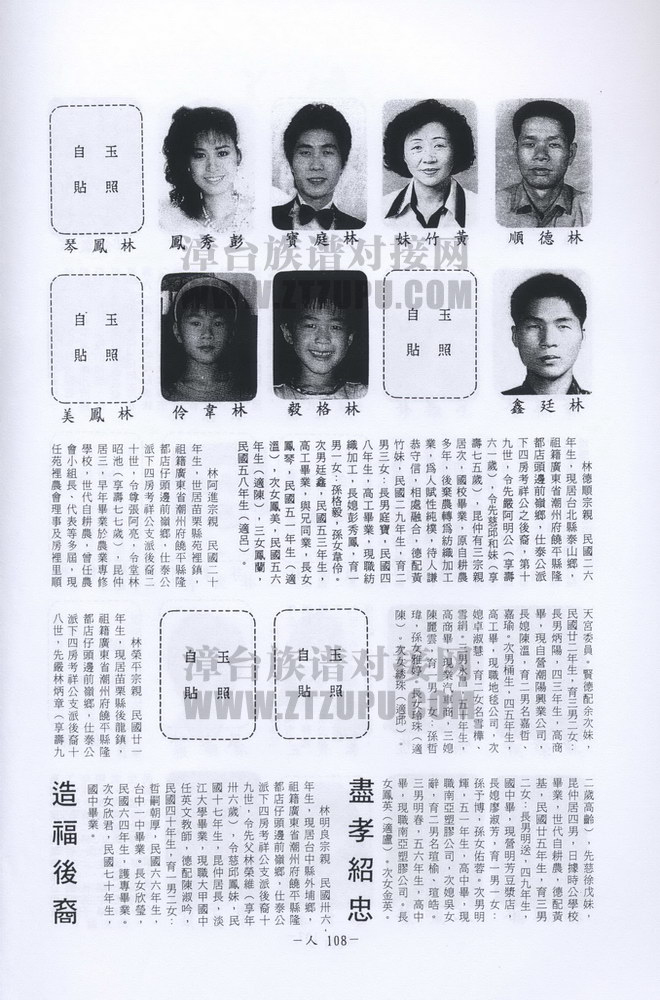 林德順
黃竹妹
林庭寶
彭秀鳳
林鳳琴
玉照
自貼
林廷鑫
玉照
自貼
林格毅
林韋伶
林鳳美
玉照
自貼
漳台族谱对接网
WWW.ZTZUPU.COM
林德順宗親　民國二六
年生，現居台北縣泰山鄉，
祖籍廣東省潮州府饒平縣隆
都店頭邊前嶺鄉，仕泰公派
下四房考祥公之後裔，第十
九世，令先嚴阿明公（享壽
六一歲），令先慈邱和妹（享
壽七五歲），昆仲有三宗親
居次，國校畢業，原自耕農
多年，後棄農轉爲紡織加工
業，爲人賦性純樸，待人謙
恭守信，相處融合，德配黃
竹妹，民國二九年生，育二
男三女：長男庭寶，民國四
八年生，高工畢業，現職紡
織加工，長媳彭秀鳳，育一
男一女：孫格毅，孫女韋伶。
次男廷鑫，民國五三年生，
高工畢業，與兄同業，長女
鳳琴，民國五一年生（適
溫），次女鳳美，民國五六
年生（適陳），三女鳳蘭，
民國五八年生（適呂）。
林阿進宗親　民國二十
年生，世居苗栗縣苑裡鎮，
祖籍廣東省潮州府饒平縣隆
都店仔頭邊前嶺鄉，仕泰公
派下四房考祥公支派後裔二
十世，令尊張阿亮，令堂林
昭池（享壽七七歲），昆仲
居三，早年畢業於農業專修
學校，世代自耕農，曾任農
會小組長、代表等多屆，現
任苑裡農會理事及房裡里順
天宮委員。賢德配余次妹，
民國廿二年生，育三男二女：
長男炳陽，四三年生，高商
畢，現自營潮陽興業公司，
長媳陳溫，育二男名嘉哲、
嘉瑜。次男楠生，四五年生，
高工畢業，現職地毯公司，次
媳卓淑慧，育二女名雪樺、
雪絹。三男永富，五十年生，
高商畢，現業汽車商，三媳
陳麗雲，育一男一女：孫哲
瑋，孫女雅婷，長女琇珠（適
陳），次女綉珠（適邱）。
玉照
自貼
玉照
自貼
漳台族谱对接网
WWW.ZTZUPU.COM
林榮平宗親　民國廿一
年生，現居苗栗縣後龍鎮，
祖籍廣東省潮州府饒平縣隆
都店仔頭邊前嶺鄉，仕泰公
派下四房考祥公支派後裔十
八世，先嚴林炳章（享壽九
二歲高齡），先慈徐戊妹，
昆仲居四男，日據時公學校
畢業，世代自耕農，德配黃
基，民國廿五年生，育三男
二女：長男明送，四九年生，
國中畢，現營明芳豆漿店，
長媳廖淑芳，育一男一女：
孫予博，孫女佑蓉。次男明
輝，五一年生，高中畢，現
職南亞塑膠公司，次媳吳女
辭，育二男名瑄榆、瑄晧。
三男明春，五六年生，高中
畢，現職南亞塑膠公司，長
女鳳英（適盧）。次女金英。
盡孝紹忠
林明良宗親　民國卅六
年生，現居台中縣外埔鄉，
祖籍廣東省潮州府饒平縣隆
都店仔頭邊前嶺鄉，仕泰公
派下四房考祥公支派後裔十
九世，令先父林榮維（享年
卅六歲），令慈邱鳳妹，民
國十七年生，昆仲居長，淡
江大學畢業，現職大甲國中
任英文教師，德配陳淑吟，
民國四十年生，育一男二女：
哲嗣朝厚，民國六六年生，
台中一中畢業。長女欣瑩，
民國六四年生，護專畢業。
次女欣君，民國七十年生，
國中畢業。
造福後裔
－人 108－